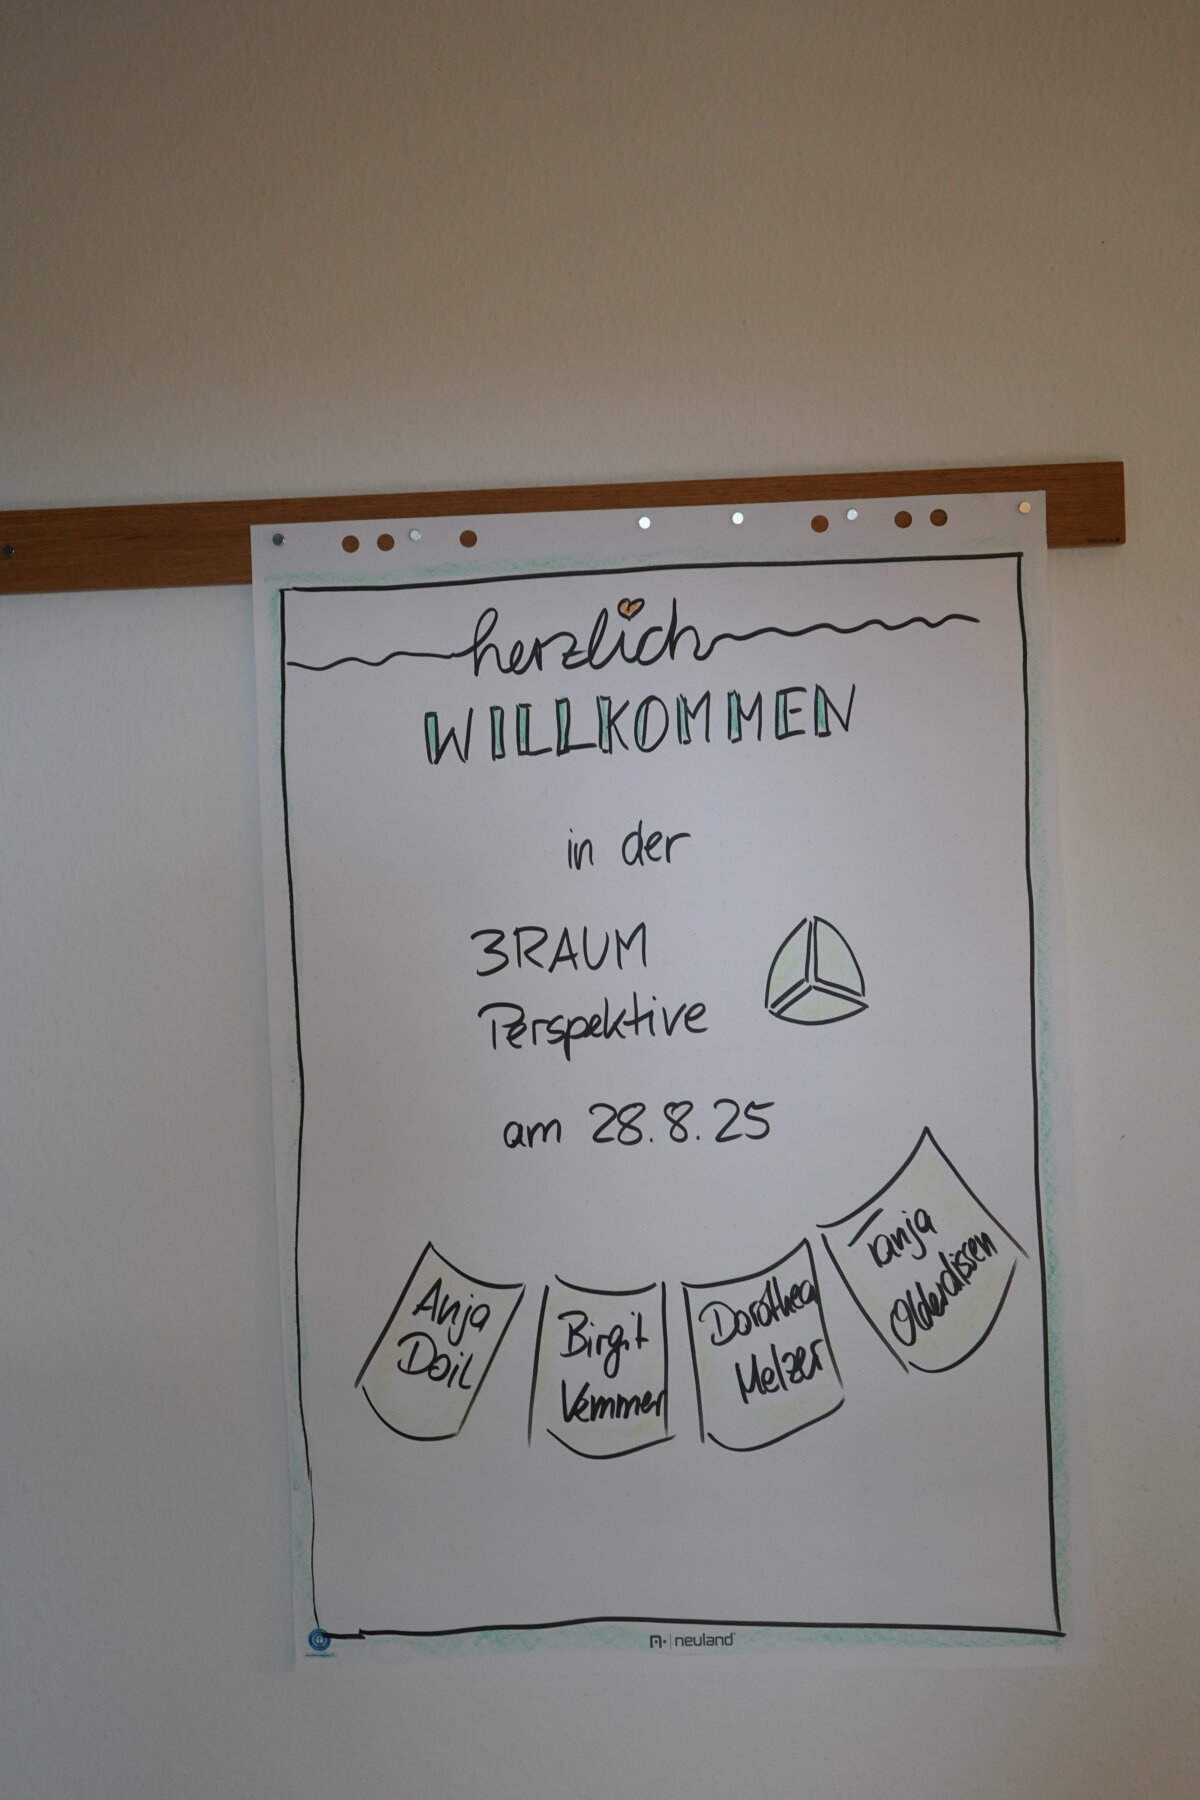 herzlich
WILLKOMMEN
in der
3RAUM
Perspektive
am 28.8.25
Anja
Doil
Birgit
Vemmer
Dorothea
Melzer
Tanja
Olderdissen
neuland